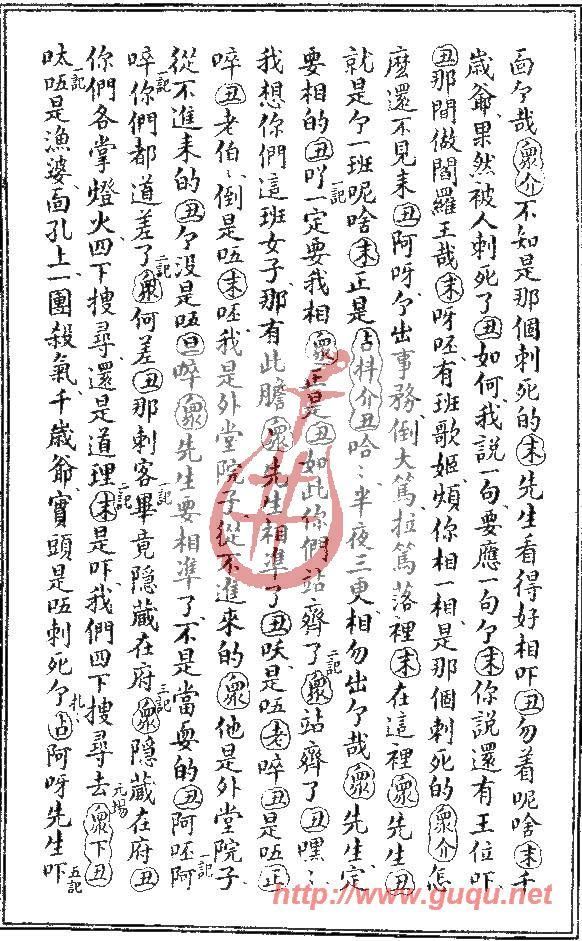 面勺哉(衆介)不知是那個刺死的(末)先生看得好相吓(丑)勿着呢啥(末)千
歲爺果然被人刺死了(丑)如何我説一句要應一句勺(末)你説還有王位吓
(丑)那間做閻羅王哉(末)呀呸有班歌姬煩你相一相是那個刺死的(衆介)怎
麽還不見来(丑)阿呀勺出事務倒大篤拉篤落裡(末)在這裡(衆)先生(丑)
就是勺一班呢啥(末)正是(占抖介丑)哈〻半夜三更相勿出勺哉(衆)先生定
要相的(丑)吖一定要我相(衆)正是(丑)如此你們站齊了(衆)站齊了(丑)嘿〻
我想你們這班女子那有此膽(衆)先生相準了(丑)呋是唔(老)啐(丑)是唔(正)
啐(丑)老伯〻倒是唔(末)呸我是外堂院子從不進來的(衆)他是外堂院子
從不進来的(丑)勺没是唔(旦)啐(衆)先生要相準了不是當耍的(丑)阿呸阿
啐你們都道差了(衆)何差(丑)那刺客畢竟隠藏在府(衆)隠藏在府(丑)
你們各掌燈火四下搜尋還是道理(末)是吓我們四下搜尋去(衆下丑)
呔唔是漁婆面孔上一團殺氣千歲爺實頭是唔刺死勺(占)阿呀先生吓
http://www.guqu.net